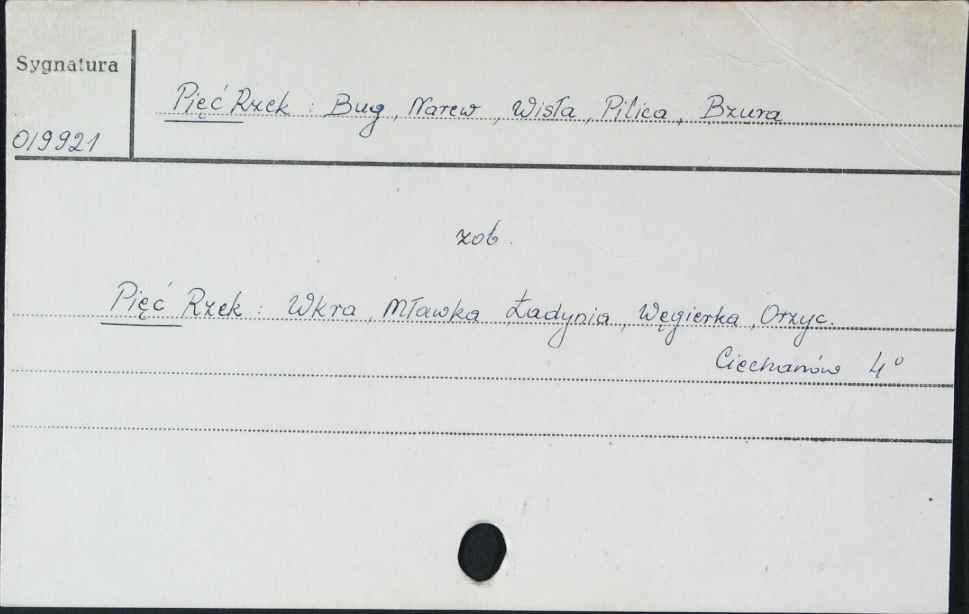 Sygnatura
019921
Pięć Rzek : Bug, Narew, Wisła, Pilica, Bzura
zob.
Pięć Rzek : Wkra, Mławka Ładynia, Węgierka, Orzyc.
Ciechanów 4°